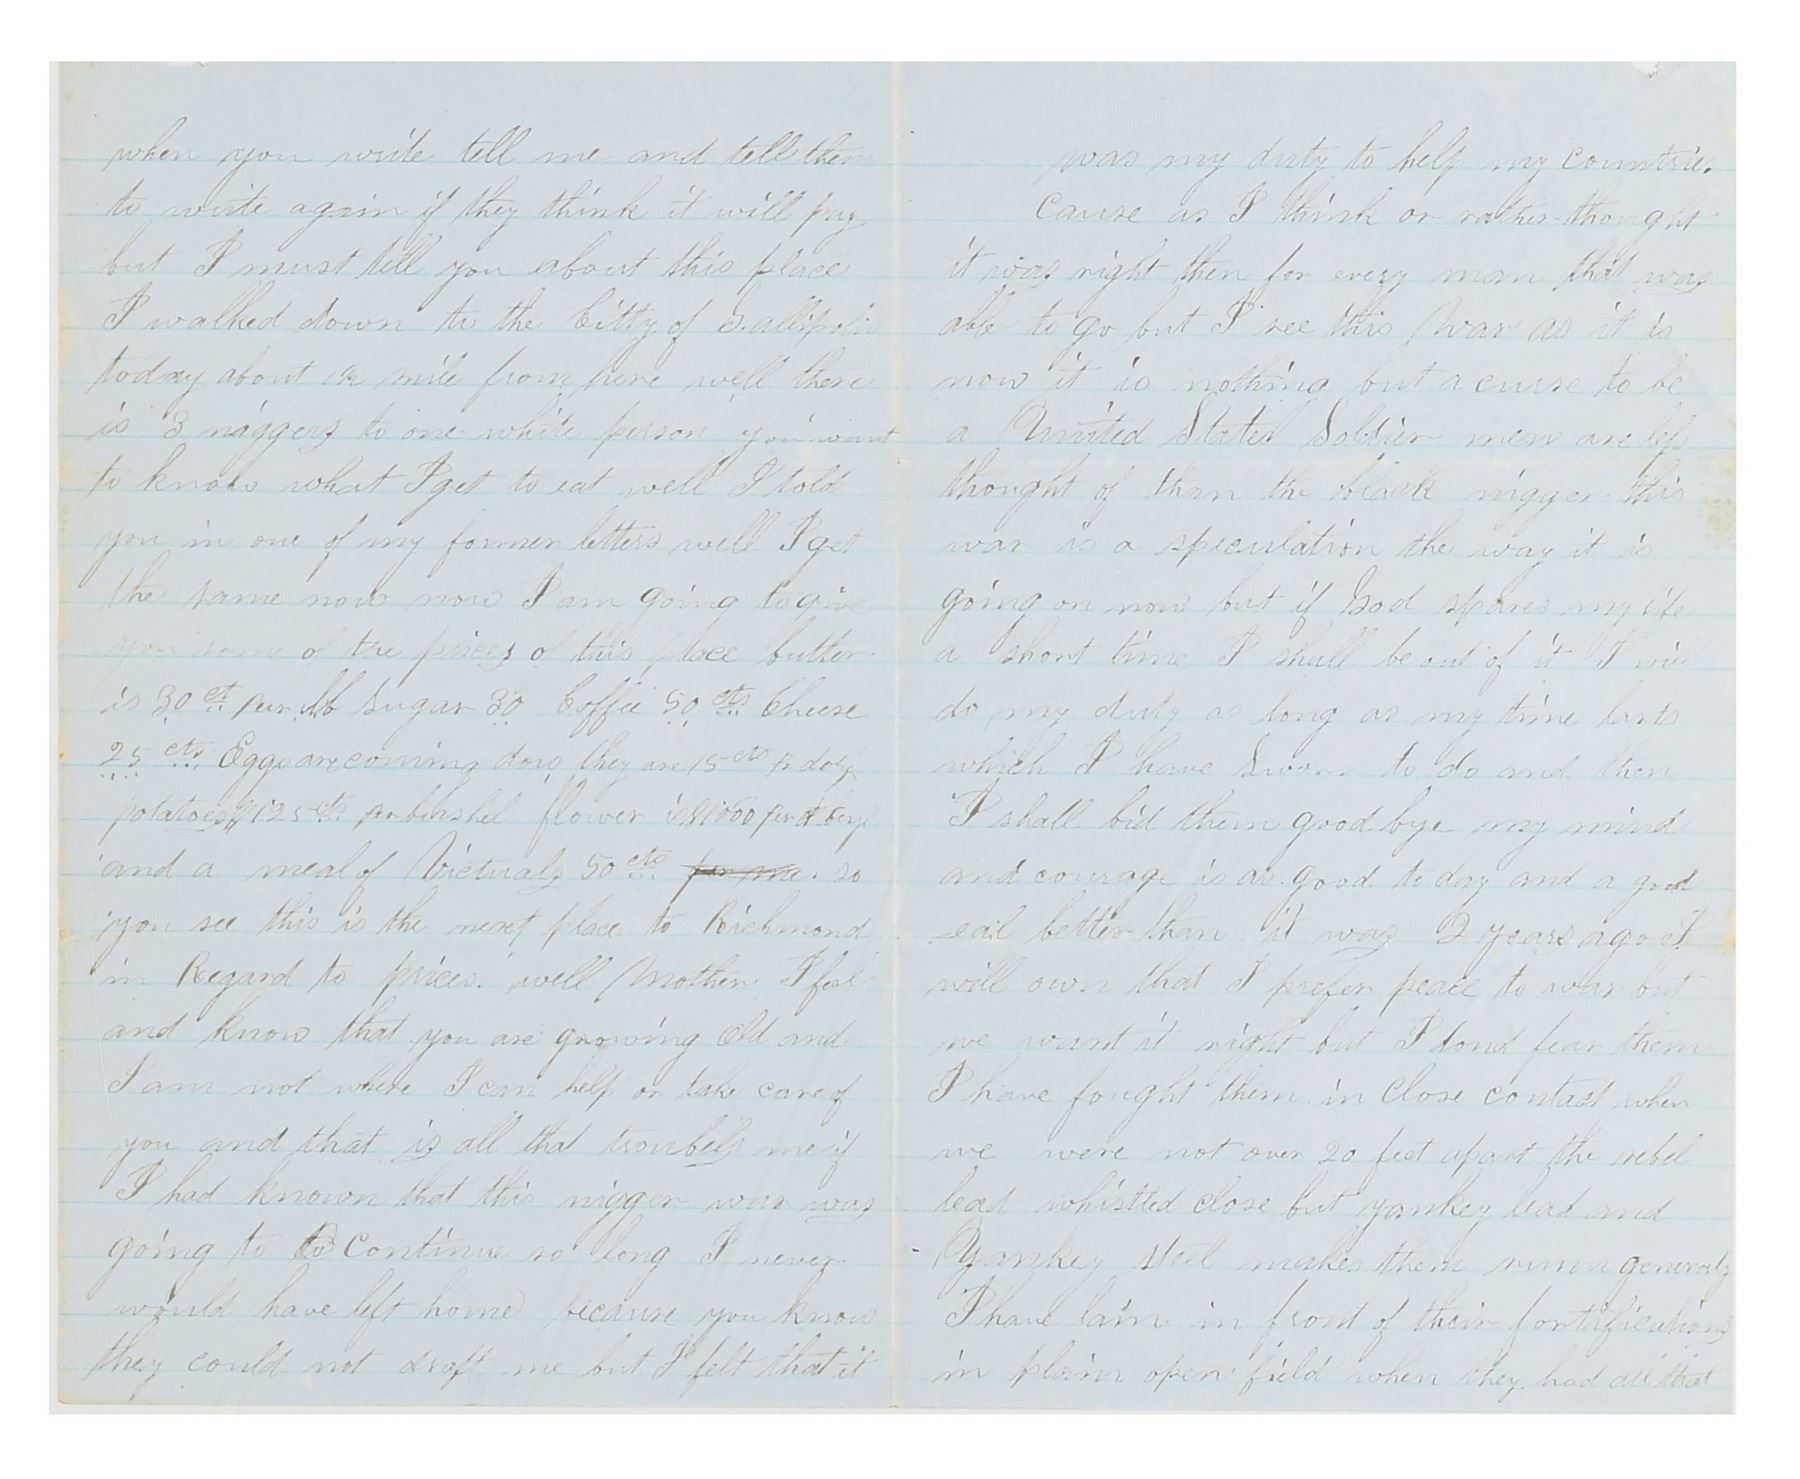 when you write tell me and tell them
to write again if they think it will pay
but I must tell you about this place
I walked down to the Citty of Gallipolis
today about a mile from here well there
is 3 niggers to one white person you want
to know what I get to eat well I told
you in one of my former letters well I get
the same now now I am going to give
you some of the prices of this place butter
is 30 ct per lb Sugar 30 Coffee 50 cts Cheese
25 cts Eggs are coming down they are 15 cts pr doz
potatoes $125 cts per bushel flower is $1000 per
and a meal of Victuals 50 cts per me. so
you see this is the next place to Richmond
in Regard to prices. well Mother I feel
and know that you are growing Old and
I am not where I can help or take care of
you and that is all that troubels me if
I had known that this nigger war was
going to to Continue so long I never
would have left home because you know
they could not draft me but I felt that it
was my duty to help my countries
cause as I think or rather thought
it was right then for every man that was
able to go but I see this War as it is
now it is nothing but a curse to be
a United States Soldier men are less
thought of than the black nigger this
war is a speculation the way it is
going on now but if God spares my life
a short time I shall be out of it I will
do my duty as long as my time lasts
which I have Sworn to do and then
I shall bid them good bye my mind
and courage is as good to day and a good
eal better than it was 2 years ago I
will own that I prefer peace to war but
we want it right but I dond fear them
I have fought them in Close contact when
we were not over 20 feet apart the rebel
lead whistled close but yankey lead and
Yankey steel makes them runn generaly
I have lain in front of their fortifications
in plain open field when they had all that